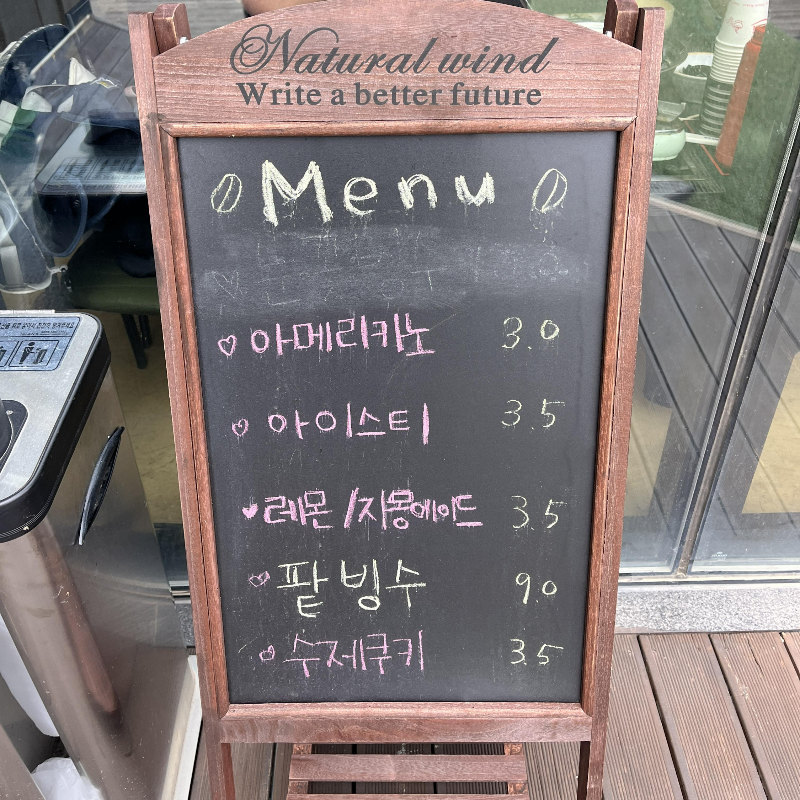 Natural wind
Write a better future
Menu
아메리카노 3.0
아이스티 3.5
레몬/자몽에이드 3.5
팥빙수 9.0
수제쿠키 3.5